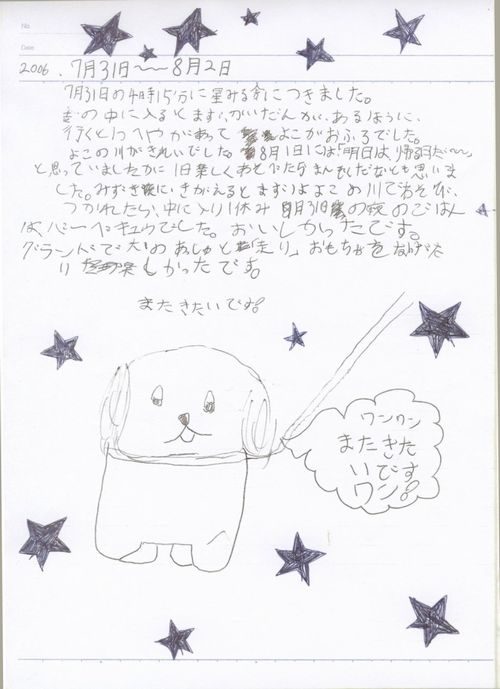 No.
Date
2006.7月31日〜〜8月2日
7月31日の4時15分に星みる家につきました。
中に入るとまず、かいだんが、あるように、
行くと1つへやがあって よこがおふろでした。
よこの川がきれいでした。8月1日には「明日は、帰る日だ〜〜」
と思っていましたが 1日楽しくあそべたらまんぞくだなとも思いま
した。みずぎにきがえるとまずよこの川であそび、
つかれたら、中に入り1休み 7月31日の夜のごはん
は、バーベキュウでした。おいしかったです。
グランドで犬のあしゅと「走り」おもちゃをなげた
り 楽しかったです。
またきたいです!
ワンワン
またきた
いです
ワン!